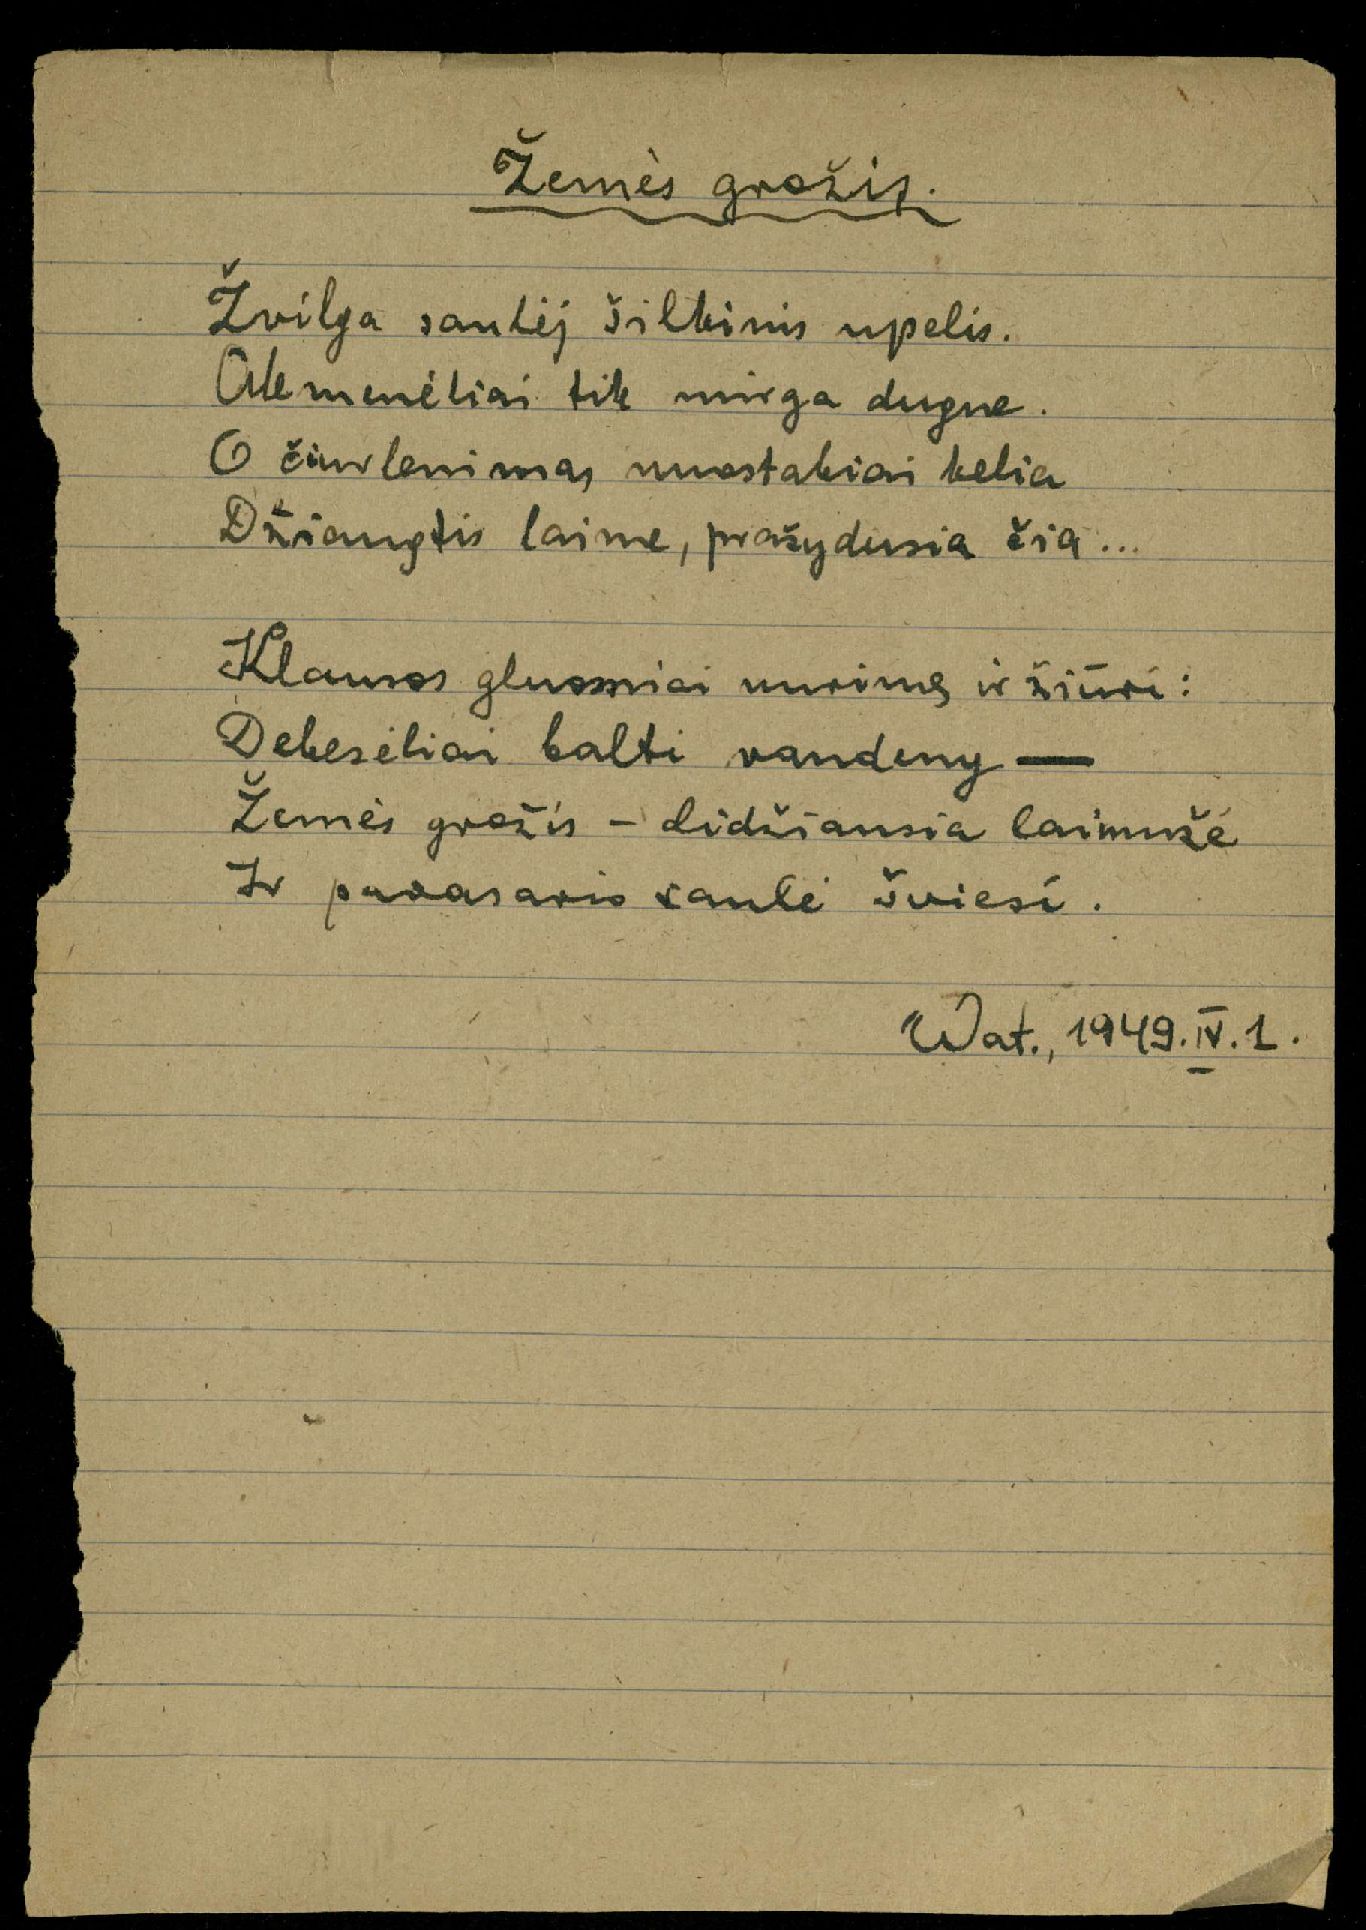 Žemės grožis.
Žvilga saulėj šilkinis upelis.
Akmenėliai tik mirga dugne.
O čiurlenimas nuostabiai kelia
Džiaugtis laime, pražydusia čia...
Klausos gluosniai nurimę ir žiūri:
Debesėliai balti vandeny —
Žemės grožis – didžiausia laimužė
Ir pavasario saulė šviesi.
Wat., 1949.IV.1.